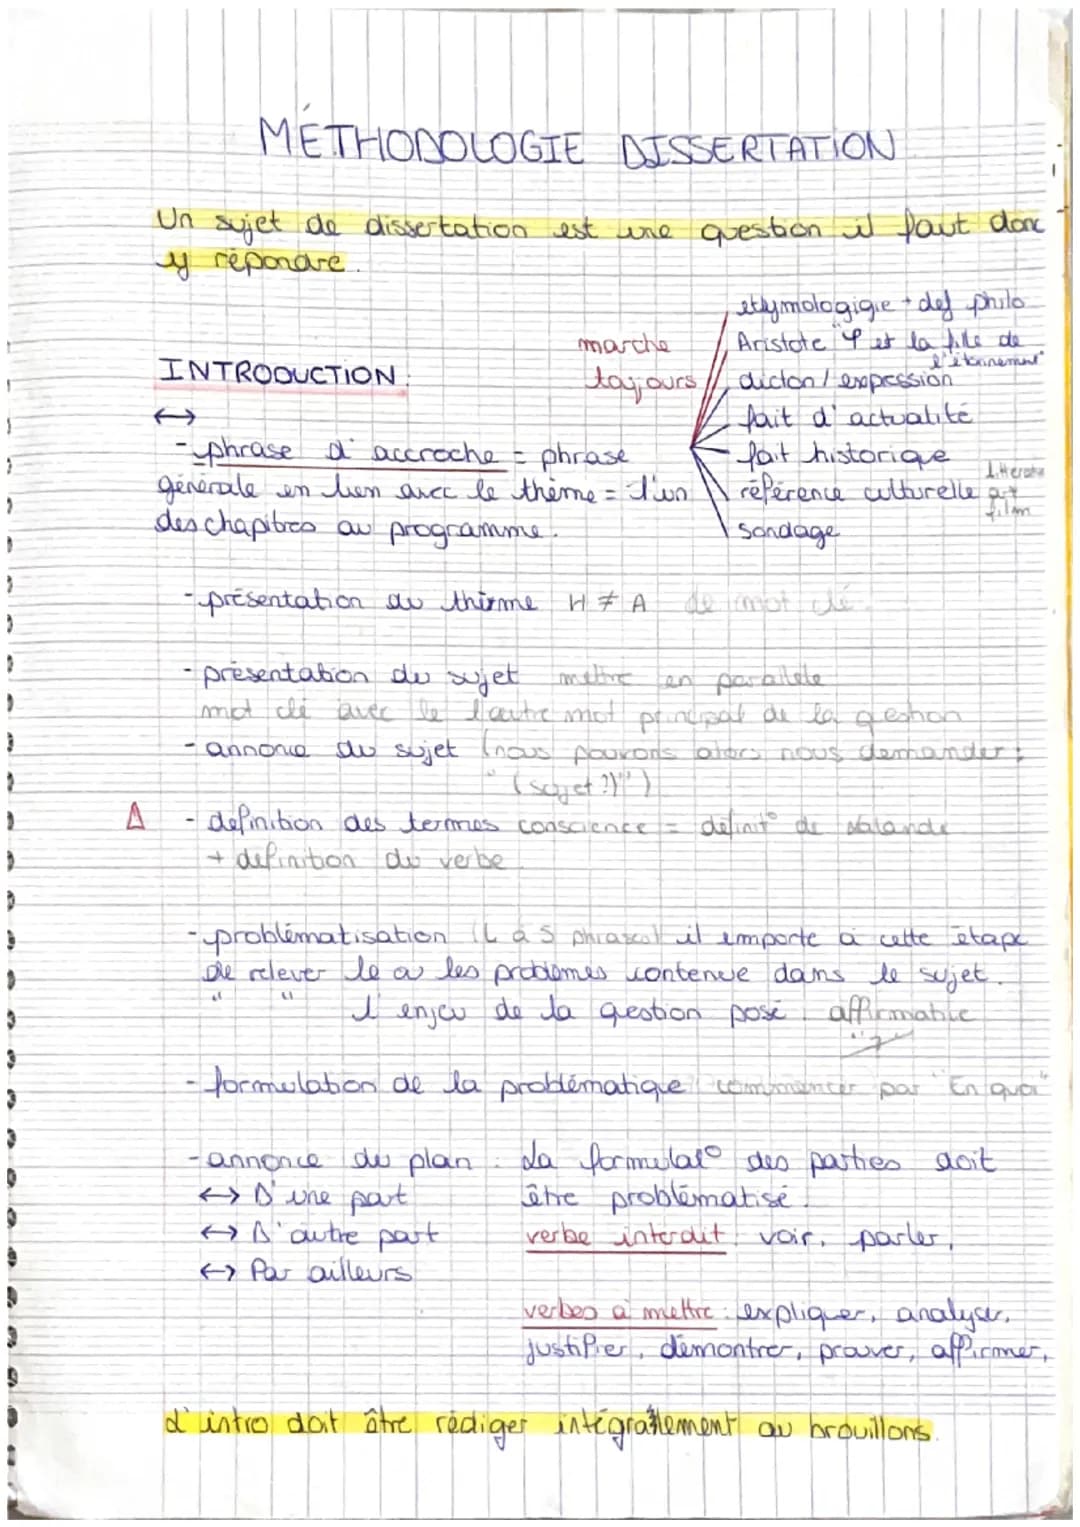 MÉTHODOLOGIE DISSERTATION
Un sujet de dissertation est une question il faut donc
y répondre.
etymologigie + def philo
marche
Aristote "φ est la fille de
l'étonnement"
INTRODUCTION :
toujours
dicton / expression
↔
fait d'actualité
- phrase d'accroche = phrase
fait historique
générale en lien avec le thème = l'un
référence culturelle
art
film
des chapitres au programme.
sondage
- présentation du thème H ≠ A de mot clé
- présentation du sujet mettre en parallele
mot clé avec le l'autre mot principal de la question
- annonce du sujet (nous pouvons alors nous demander :
" (sujet ?)")
Δ - definition des termes conscience = définit° de Lalande
+ definition du verbe
- problématisation (4 à 5 phrases) il emporte à cette étape
de relever le ou les problèmes contenue dans le sujet.
" " l'enjeu de la question posé. affirmable
"?"
- formulation de la problématique commencer par "En quoi"
- annonce du plan : La formulat° des parties doit
↔ D'une part être problématisé.
↔ D'autre part verbe interdit : voir, parler,
↔ Par ailleurs
verbes à mettre : expliquer, analyser,
justifier, démontrer, prouver, affirmer,
L'intro doit être rédiger intégralement au brouillons.